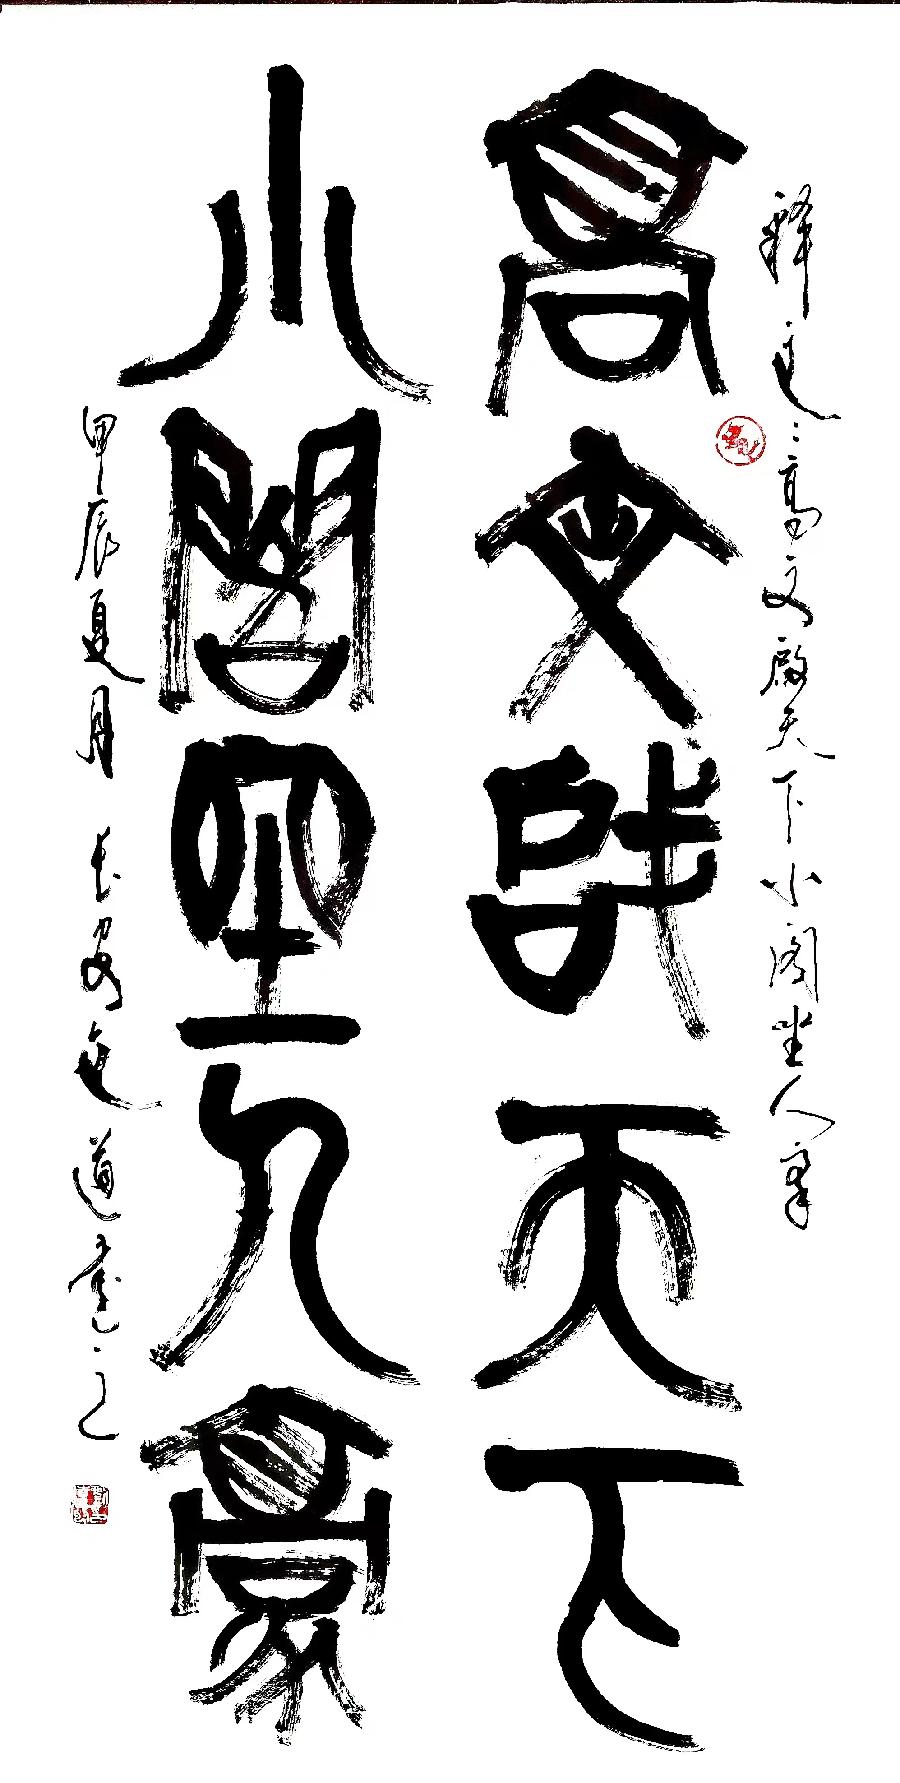 釋：高文啟天下小閣坐人豪
高文啟天下
小閣坐人豪
甲辰夏月長安道之